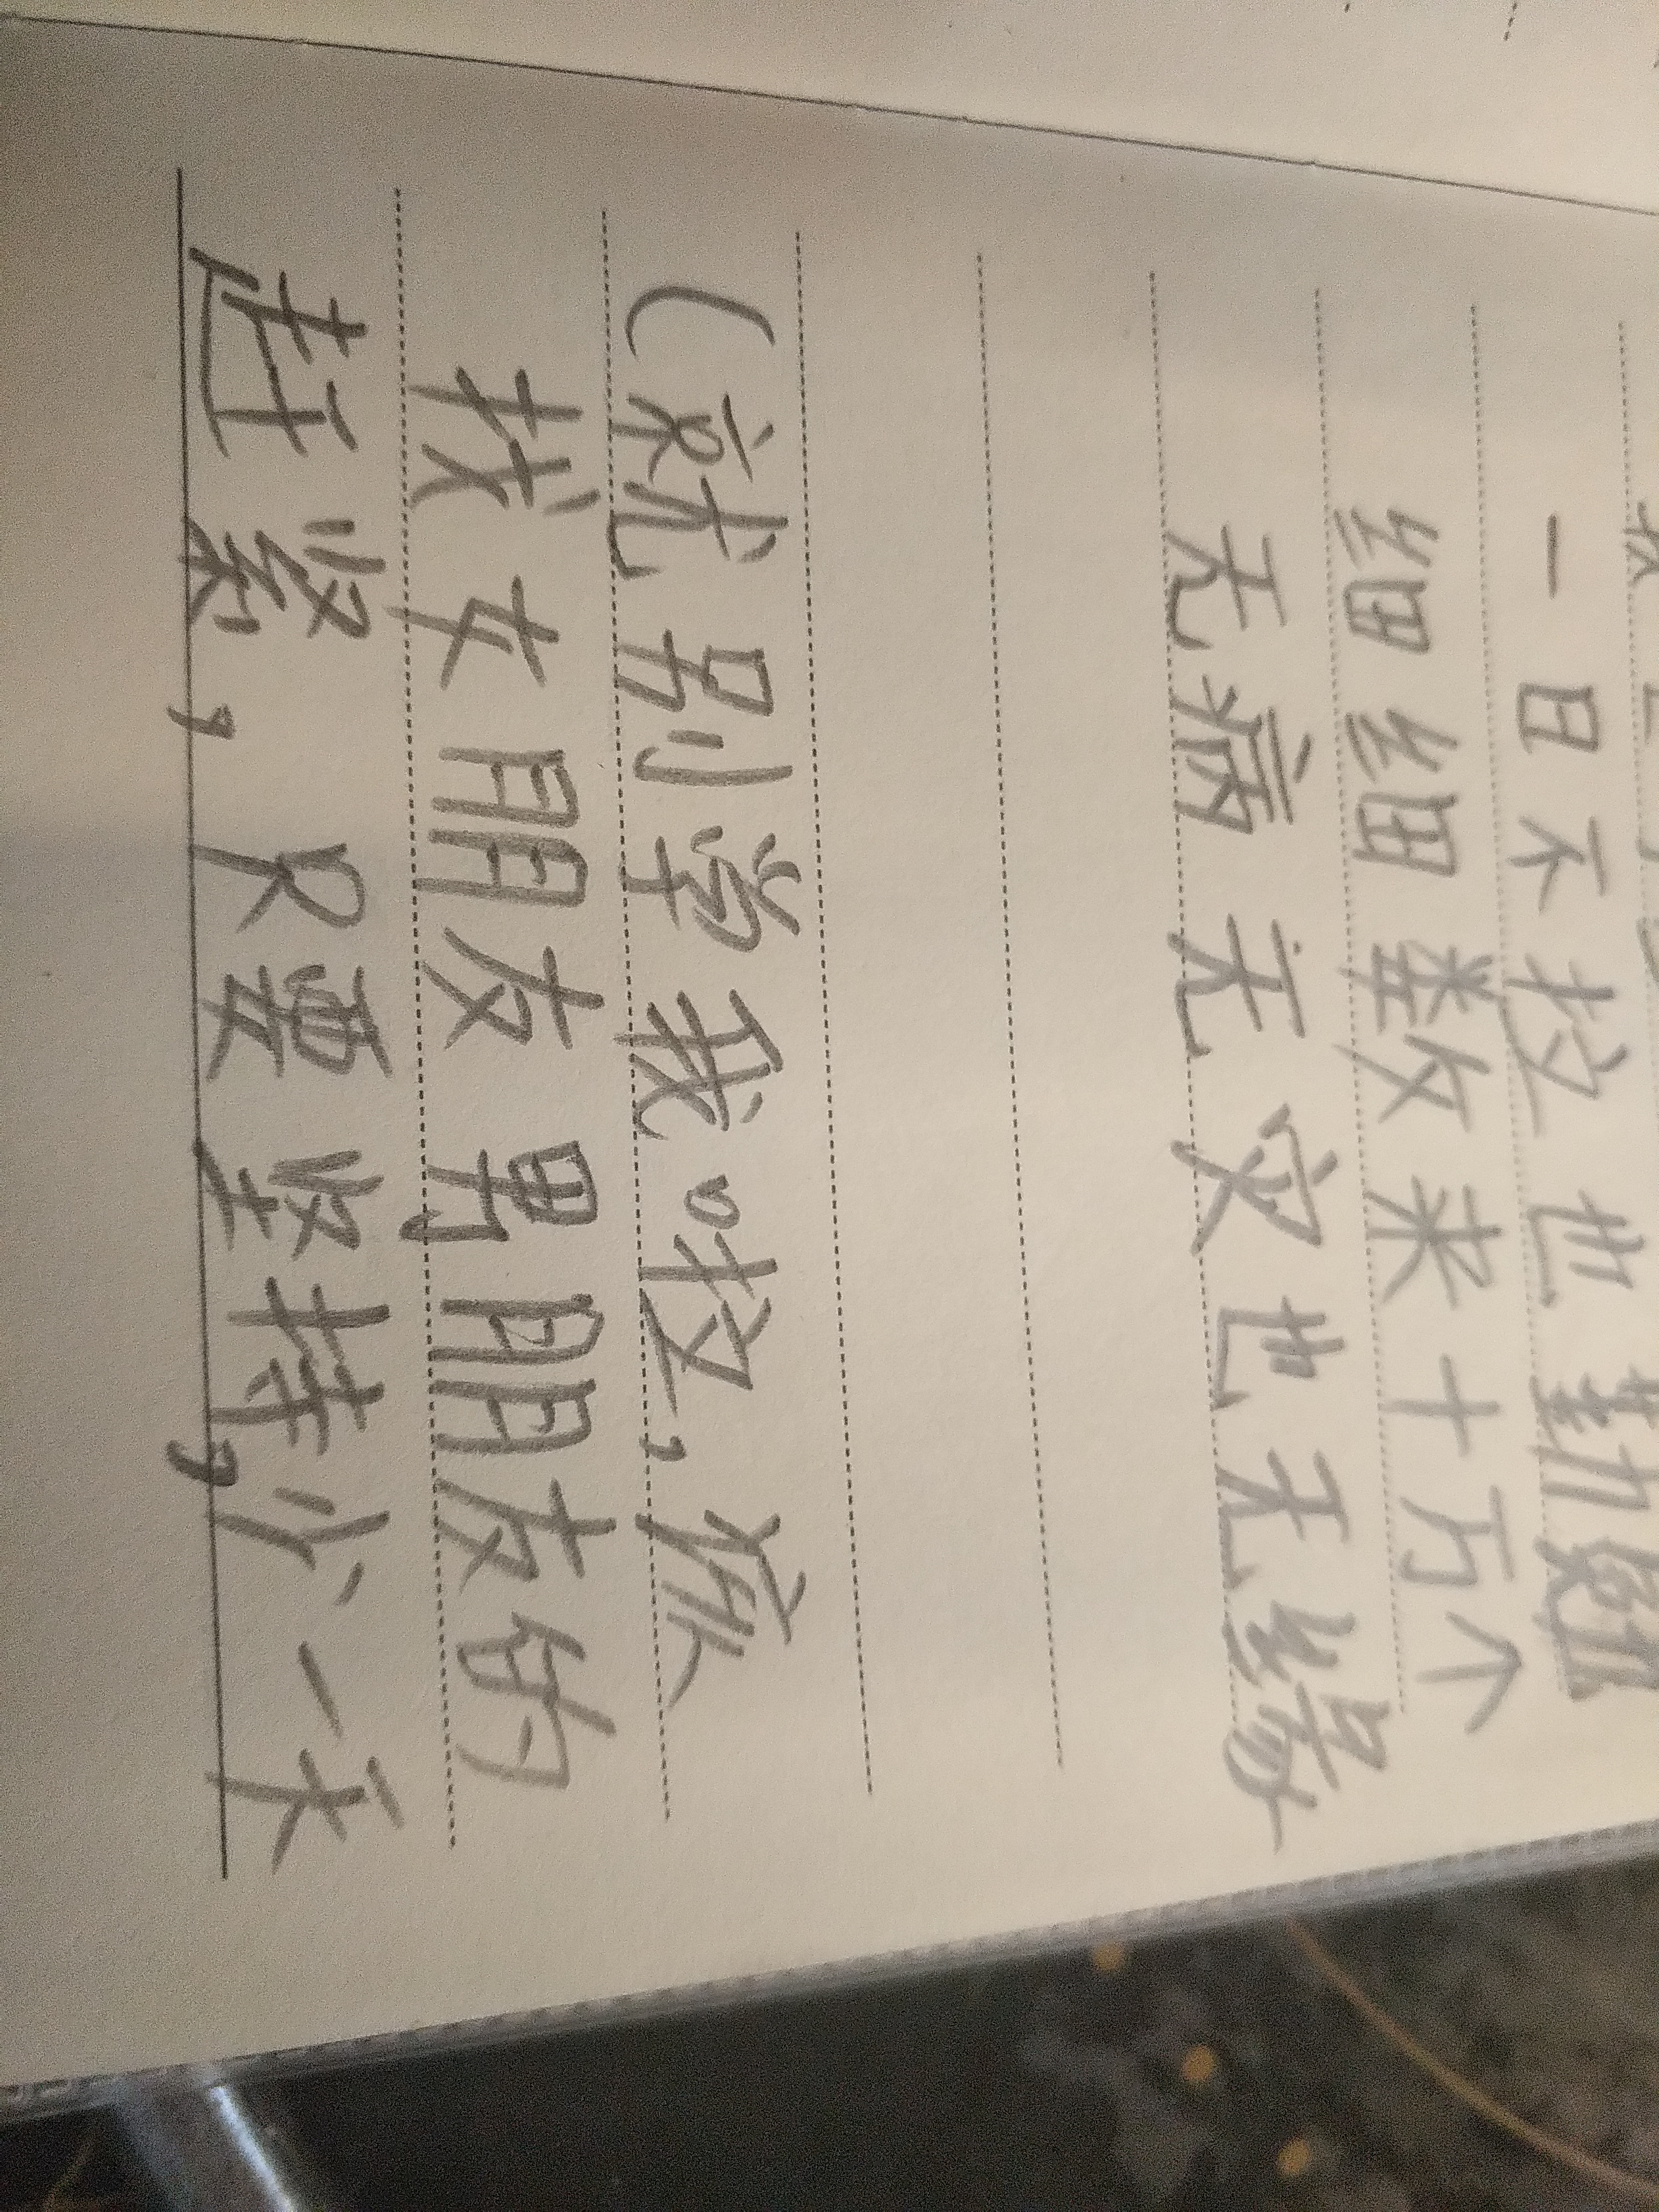 一日不拉也
细细数来十万个
无病无灾也无缘
(就别学我啦,
找女朋友男朋友的
赶紧,只要坚持,少一天